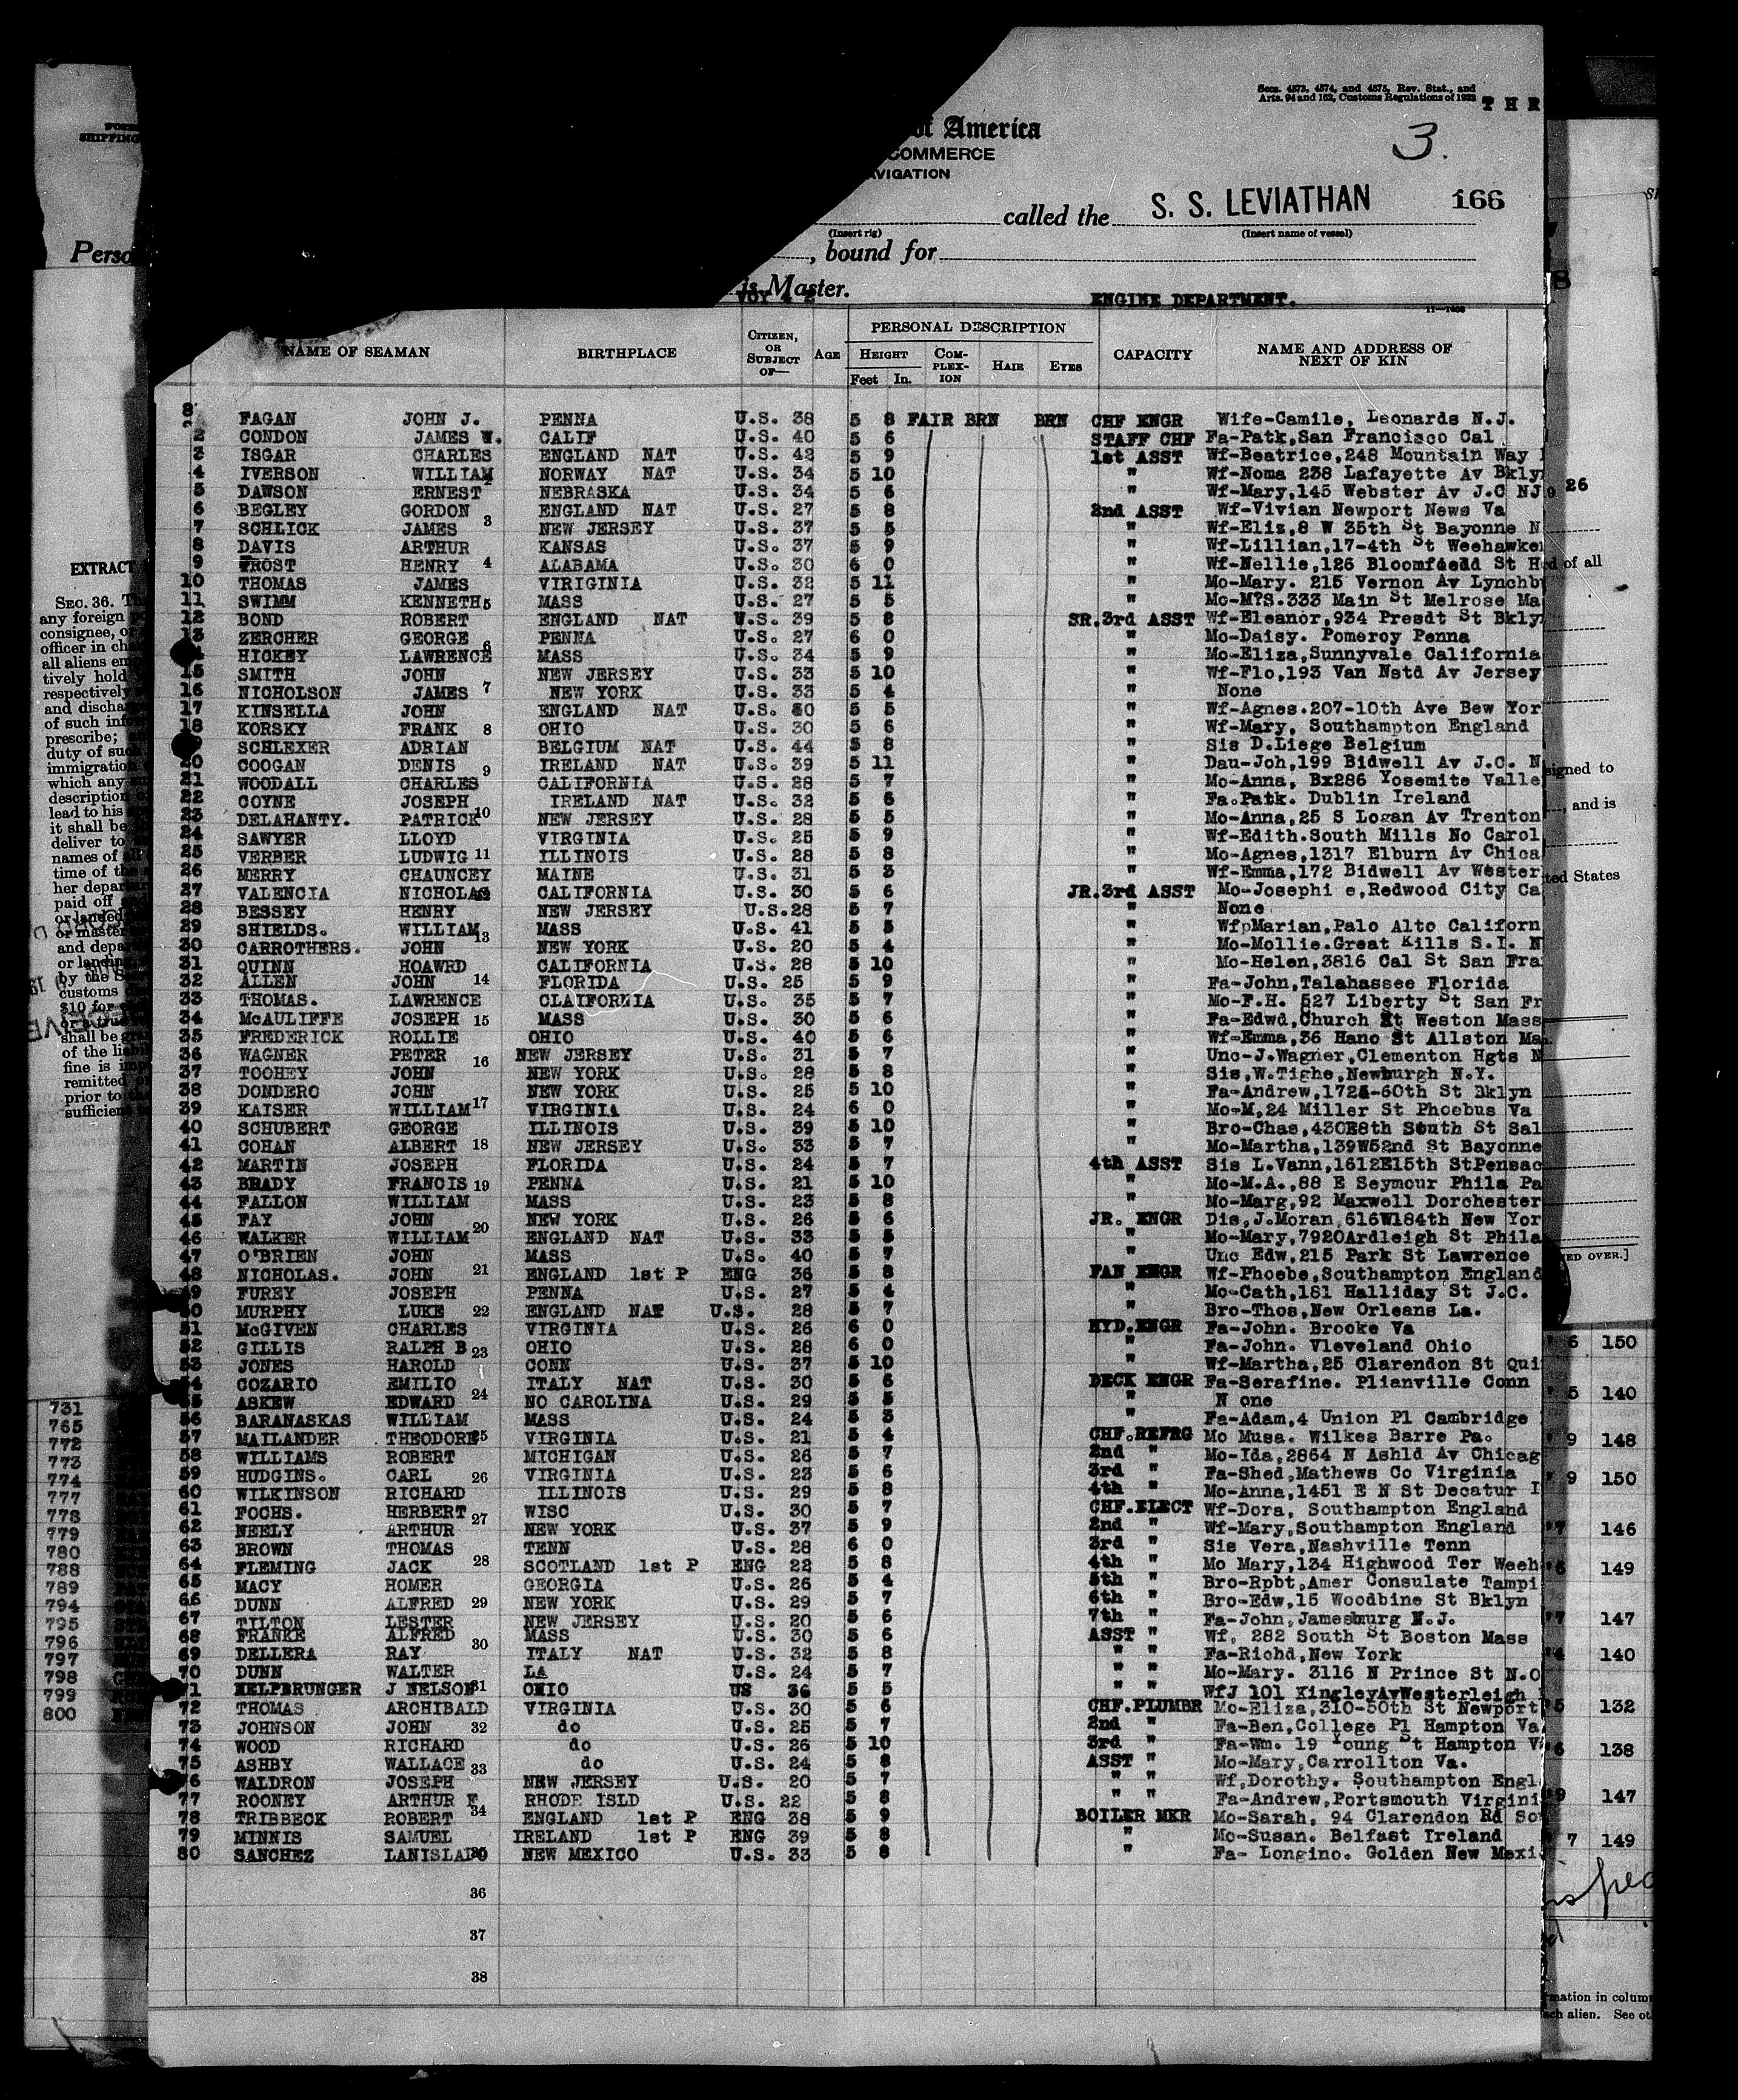 Secs. 4573, 4574, and 4575, Rev. Stat., and
Arts. 94 and 162, Customs Regulations of 1923
T H R
3.
of America
COMMERCE
AVIGATION
called the S. S. LEVIATHAN 166
(Insert rig) (Insert name of vessel)
, bound for
is Master.
ENGINE DEPARTMENT.
NAME OF SEAMAN BIRTHPLACE CITIZEN, OR SUBJECT OF— AGE PERSONAL DESCRIPTION CAPACITY NAME AND ADDRESS OF NEXT OF KIN
HEIGHT COMPLEXION HAIR EYES
Feet In.
FAGAN JOHN J. PENNA U.S. 38 5 8 FAIR BRN BRN CHF ENGR Wife-Camile, Leonards N.J.
2 CONDON JAMES W. CALIF U.S. 40 5 6 STAFF CHF Fa-Patk,San Francisco Cal
3 ISGAR CHARLES ENGLAND NAT U.S. 42 5 9 1st ASST Wf-Beatrice,248 Mountain Way
4 IVERSON WILLIAM NORWAY NAT U.S. 34 5 10 " Wf-Noma 238 Lafayette Av Bkly
5 DAWSON ERNEST NEBRASKA U.S. 34 5 6 " Wf-Mary,145 Webster Av J.C NJ
6 BEGLEY GORDON ENGLAND NAT U.S. 27 5 8 2nd ASST Wf-Vivian Newport News Va
7 SCHLICK JAMES NEW JERSEY U.S. 37 5 5 " Wf-Eliz,8 W 35th St Bayonne N
8 DAVIS ARTHUR KANSAS U.S. 37 5 9 " Wf-Lillian,17-4th St Weehawke
9 FROST HENRY ALABAMA U.S. 30 6 0 " Wf-Nellie,126 Bloomfdedd St H
10 THOMAS JAMES VIRIGINIA U.S. 32 5 11 " Mo-Mary. 215 Vernon Av Lynchb
11 SWIMM KENNETH MASS U.S. 27 5 5 " Mo-M?S.333 Main St Melrose Ma
12 BOND ROBERT ENGLAND NAT U.S. 39 5 8 SR.3rd ASST Wf-Eleanor,934 Presdt St Bkly
13 ZERCHER GEORGE PENNA U.S. 27 6 0 " Mo-Daisy. Pomeroy Penna
HICKEY LAWRENCE MASS U.S. 34 5 9 " Mo-Eliza,Sunnyvale California
15 SMITH JOHN NEW JERSEY U.S. 33 5 10 " Wf-Flo,193 Van Nstd Av Jersey
16 NICHOLSON JAMES NEW YORK U.S. 33 5 4 " None
17 KINSELLA JOHN ENGLAND NAT U.S. 40 5 5 " Wf-Agnes.207-10th Ave Bew Yor
18 KORSKY FRANK OHIO U.S. 30 5 6 " Wf-Mary, Southampton England
SCHLEXER ADRIAN BELGIUM NAT U.S. 44 5 8 " Sis D.Liege Belgium
20 COOGAN DENIS IRELAND NAT U.S. 39 5 11 " Dau-Joh,199 Bidwell Av J.C. N
21 WOODALL CHARLES CALIFORNIA U.S. 28 5 7 " Mo-Anna, Bx286 Yosemite Valle
22 COYNE JOSEPH IRELAND NAT U.S. 32 5 6 " Fa.Patk. Dublin Ireland
23 DELAHANTY. PATRICK NEW JERSEY U.S. 28 5 5 " Mo-Anna,25 S Logan Av Trenton
24 SAWYER LLOYD VIRGINIA U.S. 25 5 9 " Wf-Edith.South Mills No Carol
25 VERBER LUDWIG ILLINOIS U.S. 28 5 8 " Mo-Agnes,1317 Elburn Av Chica
26 MERRY CHAUNCEY MAINE U.S. 31 5 3 " Wf-Emma,172 Bidwell Av Wester
27 VALENCIA NICHOLAS CALIFORNIA U.S. 30 5 6 JR.3rd ASST Mo-Josephi e,Redwood City Ca
28 BESSEY HENRY NEW JERSEY U.S.28 5 7 " None
29 SHIELDS. WILLIAM MASS U.S. 41 5 5 " WfpMarian,Palo Alto Californ
30 CARROTHERS. JOHN NEW YORK U.S. 20 5 4 " Mo-Mollie.Great Kills S.I. N
31 QUINN HOAWRD CALIFORNIA U.S. 28 5 10 " Mo-Helen,3816 Cal St San Fra
32 ALLEN JOHN FLORIDA U.S. 25 5 9 " Fa-John,Talahassee Florida
33 THOMAS. LAWRENCE CLAIFORNIA U.S. 35 5 7 " Mo-F.H. 527 Liberty St San Fr
34 McAULIFFE JOSEPH MASS U.S. 30 5 6 " Fa-Edwd,Church St Weston Mass
35 FREDERICK ROLLIE OHIO U.S. 40 5 6 " Wf-Emma,36 Hano St Allston Ma
36 WAGNER PETER NEW JERSEY U.S. 31 5 7 " Unc-J.Wagner,Clementon Hgts N
37 TOOHEY JOHN NEW YORK U.S. 28 5 8 " Sis,W.Tighe,Newburgh N.Y.
38 DONDERO JOHN NEW YORK U.S. 25 5 10 " Fa-Andrew,1724-60th St Bklyn
39 KAISER WILLIAM VIRGINIA U.S. 24 6 0 " Mo-M,24 Miller St Phoebus Va
40 SCHUBERT GEORGE ILLINOIS U.S. 39 5 10 " Bro-Chas,430E8th South St Sal
41 COHAN ALBERT NEW JERSEY U.S. 33 5 7 " Mo-Martha,139W52nd St Bayonne
42 MARTIN JOSEPH FLORIDA U.S. 24 5 7 4th ASST Sis L.Vann,1612E15th StPensac
43 BRADY FRANCIS PENNA U.S. 21 5 10 " Mo-M.A.,88 E Seymour Phila Pa
44 FALLON WILLIAM MASS U.S. 23 5 8 " Mo-Marg,92 Maxwell Dorchester
45 FAY JOHN NEW YORK U.S. 26 5 6 JR. ENGR Dis,J.Moran,616W184th New Yor
46 WALKER WILLIAM ENGLAND NAT U.S. 33 5 5 " Mo-Mary,7920Ardleigh St Phila
47 O'BRIEN JOHN MASS U.S. 40 5 7 " Unc Edw,215 Park St Lawrence
48 NICHOLAS. JOHN ENGLAND 1st P ENG 36 5 8 FAN ENGR Wf-Phoebe,Southampton England
49 FUREY JOSEPH PENNA U.S. 27 5 4 " Mo-Cath,181 Halliday St J.C.
50 MURPHY LUKE ENGLAND NAT U.S. 28 5 7 " Bro-Thos,New Orleans La.
51 McGIVEN CHARLES VIRGINIA U.S. 26 6 0 HYD.ENGR Fa-John. Brooke Va
52 GILLIS RALPH B OHIO U.S. 28 6 0 " Fa-John. Vleveland Ohio
53 JONES HAROLD CONN U.S. 37 5 10 " Wf-Martha,25 Clarendon St Qui
54 COZARIO EMILIO ITALY NAT U.S. 30 5 6 DECK ENGR Fa-Serafine. Plianville Conn
55 ASKEW EDWARD NO CAROLINA U.S. 29 5 5 " N one
56 BARANASKAS WILLIAM MASS U.S. 24 5 3 " Fa-Adam,4 Union Pl Cambridge
57 MAILANDER THEODORE VIRGINIA U.S. 21 5 4 CHF.REFRG Mo Musa. Wilkes Barre Pa.
58 WILLIAMS ROBERT MICHIGAN U.S. 26 5 7 2nd " Mo-Ida,2864 N Ashld Av Chicag
59 HUDGINS. CARL VIRGINIA U.S. 23 5 6 3rd " Fa-Shed,Mathews Co Virginia
60 WILKINSON RICHARD ILLINOIS U.S. 29 5 8 4th " Mo-Anna,1451 E N St Decatur I
61 FOCHS. HERBERT WISC U.S. 30 5 7 CHF.ELECT Wf-Dora, Southampton England
62 NEELY ARTHUR NEW YORK U.S. 37 5 9 2nd " Wf-Mary,Southampton England
63 BROWN THOMAS TENN U.S. 28 6 0 3rd " Sis Vera,Nashville Tenn
64 FLEMING JACK SCOTLAND 1st P ENG 22 5 8 4th " Mo Mary,134 Highwood Ter Weeh
65 MACY HOMER GEORGIA U.S. 26 5 4 5th " Bro-Rpbt,Amer Consulate Tampi
66 DUNN ALFRED NEW YORK U.S. 29 5 7 6th " Bro-Edw,15 Woodbine St Bklyn
67 TILTON LESTER NEW JERSEY U.S. 20 5 6 7th " Fa-John,Jamesburg N.J.
68 FRANKE ALFRED MASS U.S. 30 5 6 ASST " Wf, 282 South St Boston Mass
69 DELLERA RAY ITALY NAT U.S. 32 5 8 " " Fa-Richd,New York
70 DUNN WALTER LA U.S. 24 5 7 " " Mo-Mary. 3116 N Prince St N.O
71 HELPBRUNGER J NELSON OHIO US 36 5 5 " " WfJ 101 KingleyAvWesterleigh
72 THOMAS ARCHIBALD VIRGINIA U.S. 30 5 6 CHF.PLUMBR Mo-Eliza,310-50th St Newport
73 JOHNSON JOHN do U.S. 25 5 7 2nd " Fa-Ben,College Pl Hampton Va
74 WOOD RICHARD do U.S. 26 5 10 3rd " Fa-Wm. 19 Young St Hampton V
75 ASHBY WALLACE do U.S. 24 5 8 ASST " Mo-Mary,Carrollton Va.
76 WALDRON JOSEPH NEW JERSEY U.S. 20 5 7 " " Wf,Dorothy. Southampton Engl
77 ROONEY ARTHUR F RHODE ISLD U.S. 22 5 8 " " Fa-Andrew,Portsmouth Virgini
78 TRIBBECK ROBERT ENGLAND 1st P ENG 38 5 9 BOILER MKR Mo-Sarah, 94 Clarendon Rd Sou
79 MINNIS SAMUEL IRELAND 1st P ENG 39 5 8 " Mo-Susan. Belfast Ireland
80 SANCHEZ LANISLADO NEW MEXICO U.S. 33 5 8 " Fa- Longino. Golden New Mexi
36
37
38
SHIPPING
Perso
EXTRACT
SEC. 36. T
any foreign
consignee, or
officer in cha
all aliens em
tively hold
respectively
and discha
of such info
prescribe;
duty of suc
immigration
which any
description
lead to his
it shall be
deliver to
names of
time of the
her depart
paid off
or landed
or master
and depar
or landing
by the S
customs
$10 for
or a true
shall be
of the liab
fine is imp
remitted
prior to
sufficient
731
765
772
773
774
777
778
779
780
788
789
794
795
796
797
798
799
800
26
d of all
signed to
, and is
ted States
ED OVER.]
6 150
5 140
9 148
9 150
7 146
149
147
140
132
6 138
9 147
7 149
mation in colum
ach alien. See ot